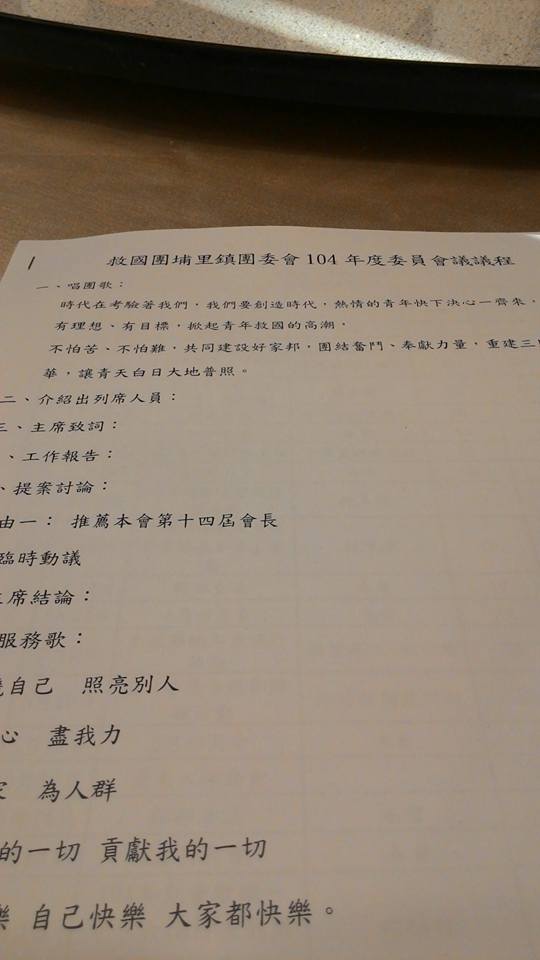 救國團埔里鎮團委會 104 年度委員會議議程
一、唱團歌：
時代在考驗著我們，我們要創造時代，熱情的青年快下決心一齊來，
有理想、有目標，掀起青年救國的高潮，
不怕苦、不怕難，共同建設好家邦，團結奮鬥、奉獻力量，重建三
華，讓青天白日大地普照。
二、介紹出列席人員：
三、主席致詞：
、工作報告：
、提案討論：
由一： 推薦本會第十四屆會長
臨時動議
主席結論：
服務歌：
自己 照亮別人
心 盡我力
為人群
的一切 貢獻我的一切
樂 自己快樂 大家都快樂。